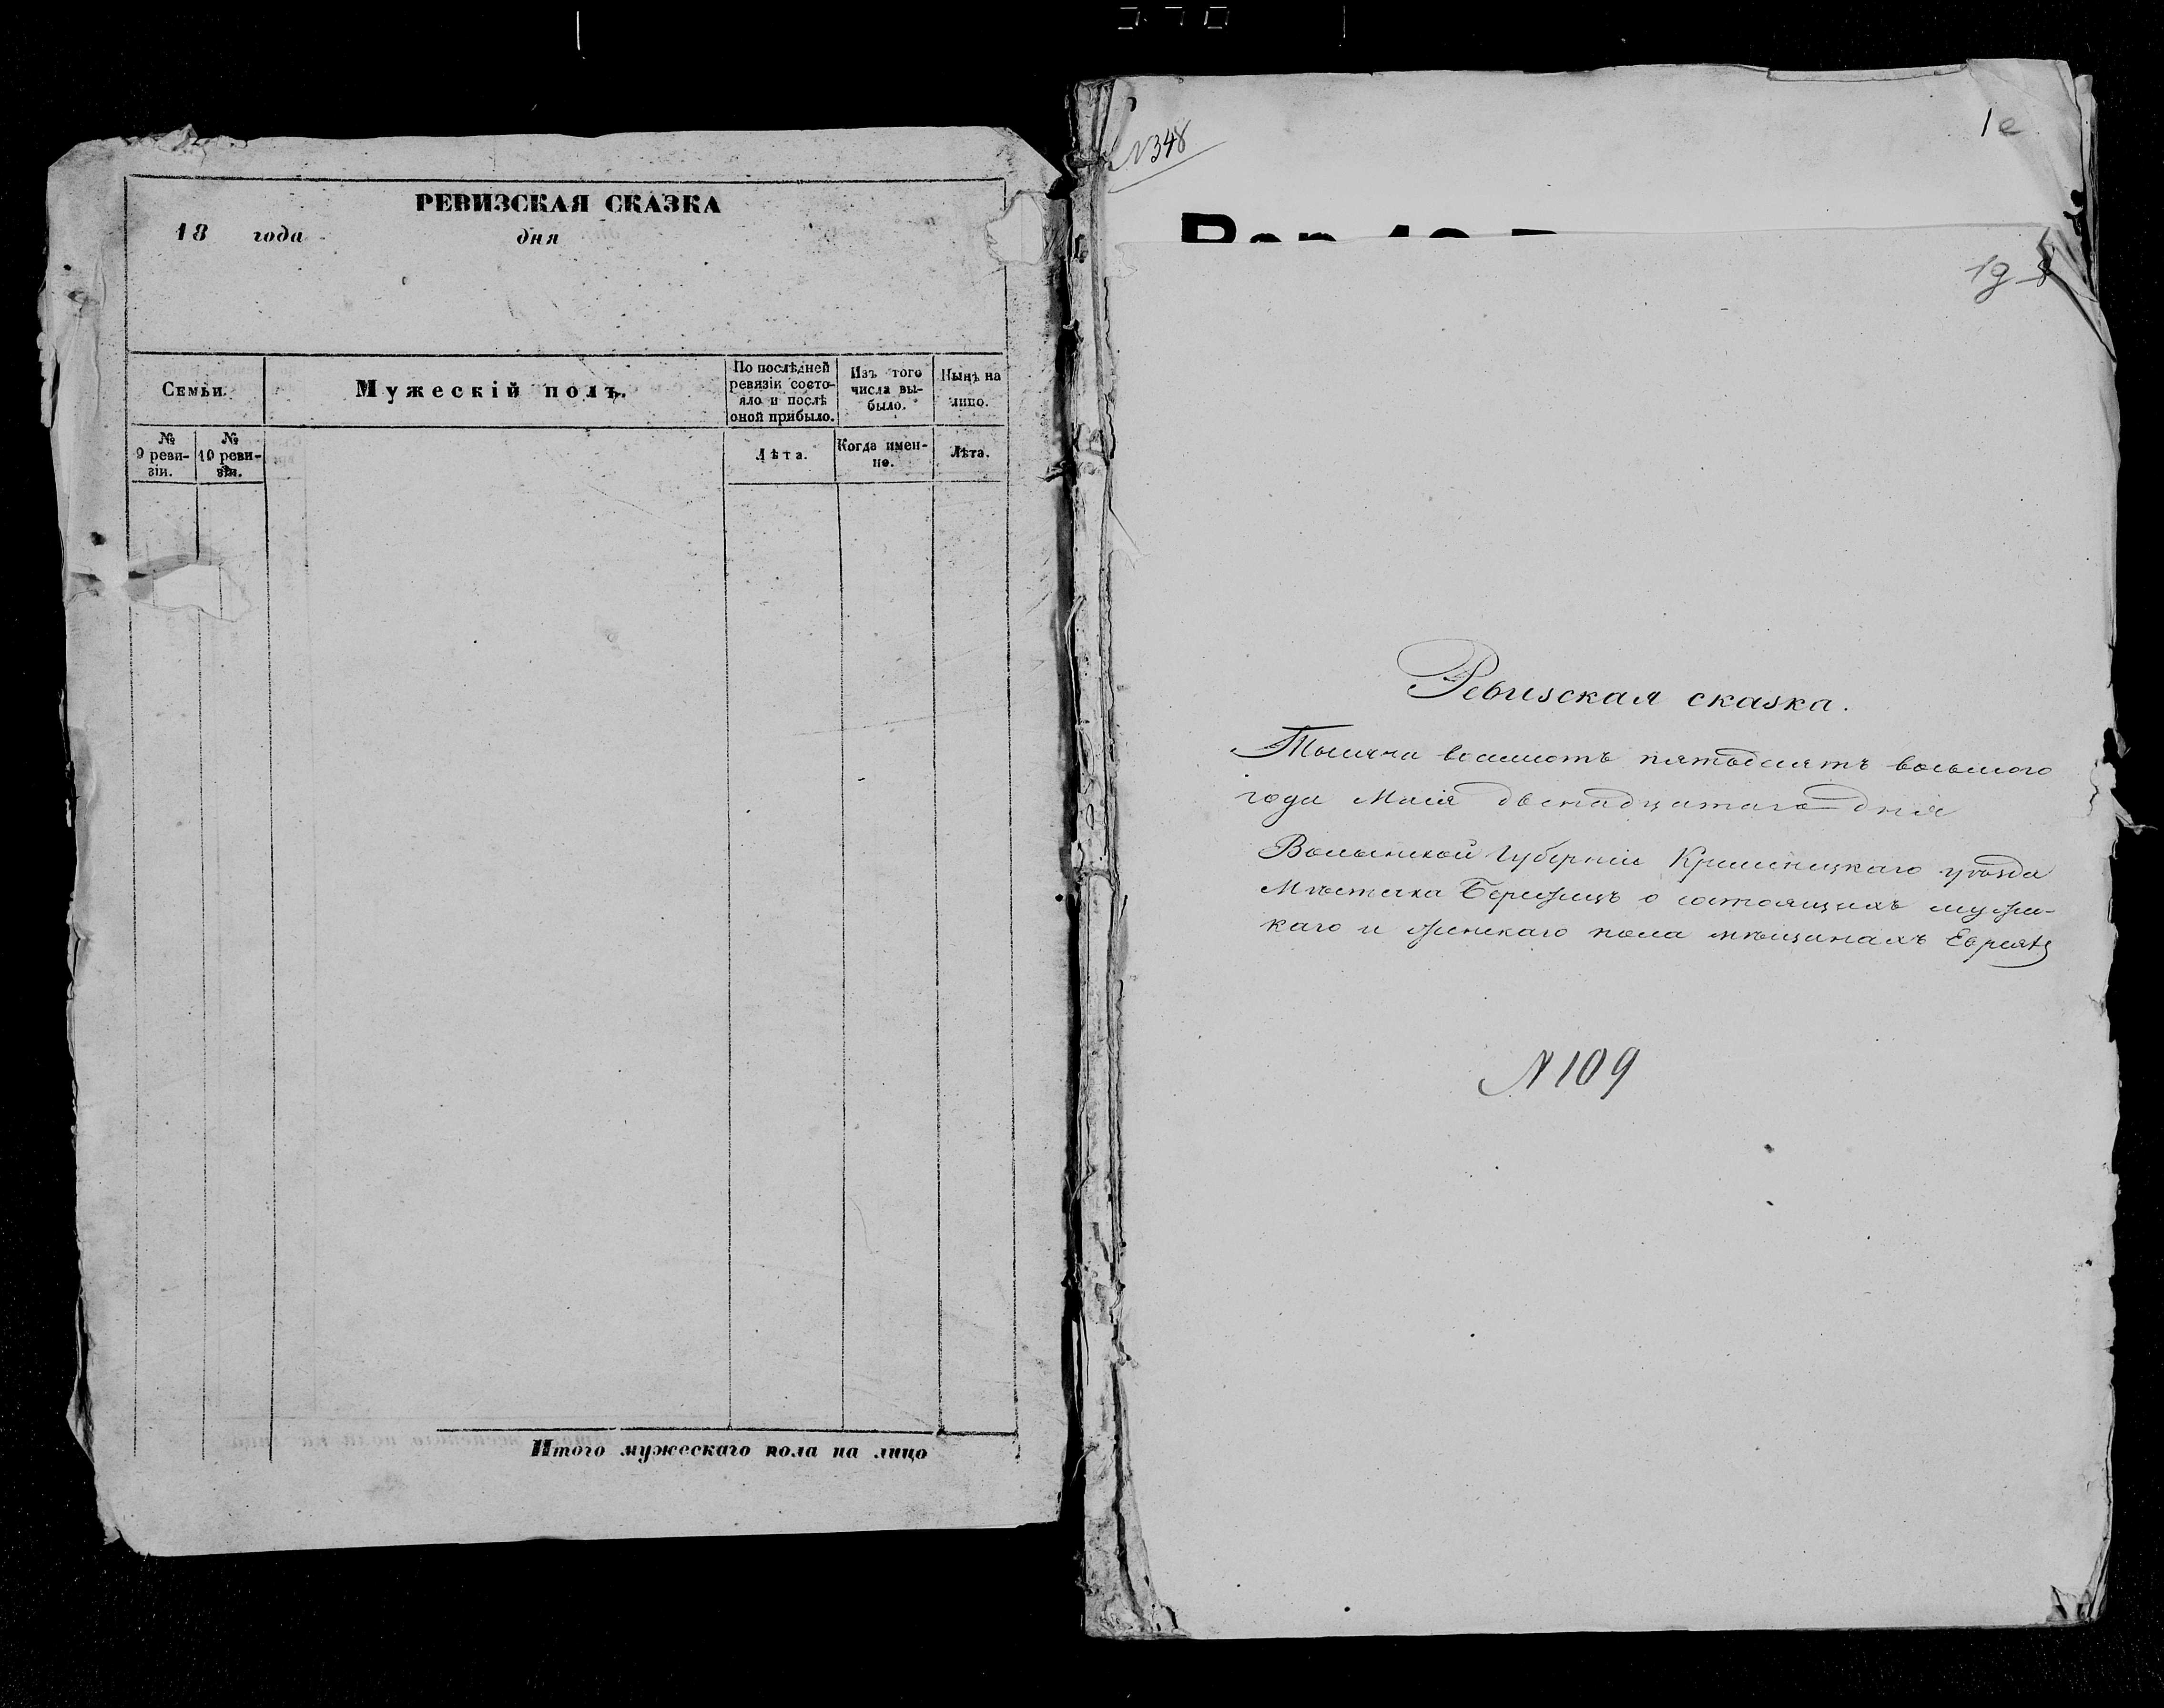 РЕВИЗСКАЯ СКАЗКА
18 года дня
Семьи.
Мужескій полъ.
По послѣдней
ревязіи состо-
яло и послѣ
оной прибыло.
Изъ того
числа вы-
было.
Нынѣ на
лицо.
№
9 реви-
зіи.
№
10 реви-
зіи.
Лѣта.
Когда имен-
но.
Лѣта.
Итого мужескаго пола на лицо
N 348
1е
1д
Ревизская сказка.
Тысяча восемсотъ пятьдесятъ восьмого
года Маія двенадцатаго дня
Волынской Губерніи Кременецкаго уѣзда
Мѣстечка Бережецъ о состоящихъ мужес-
каго и женскаго пола мѣщанахъ Евреяхъ
N 109